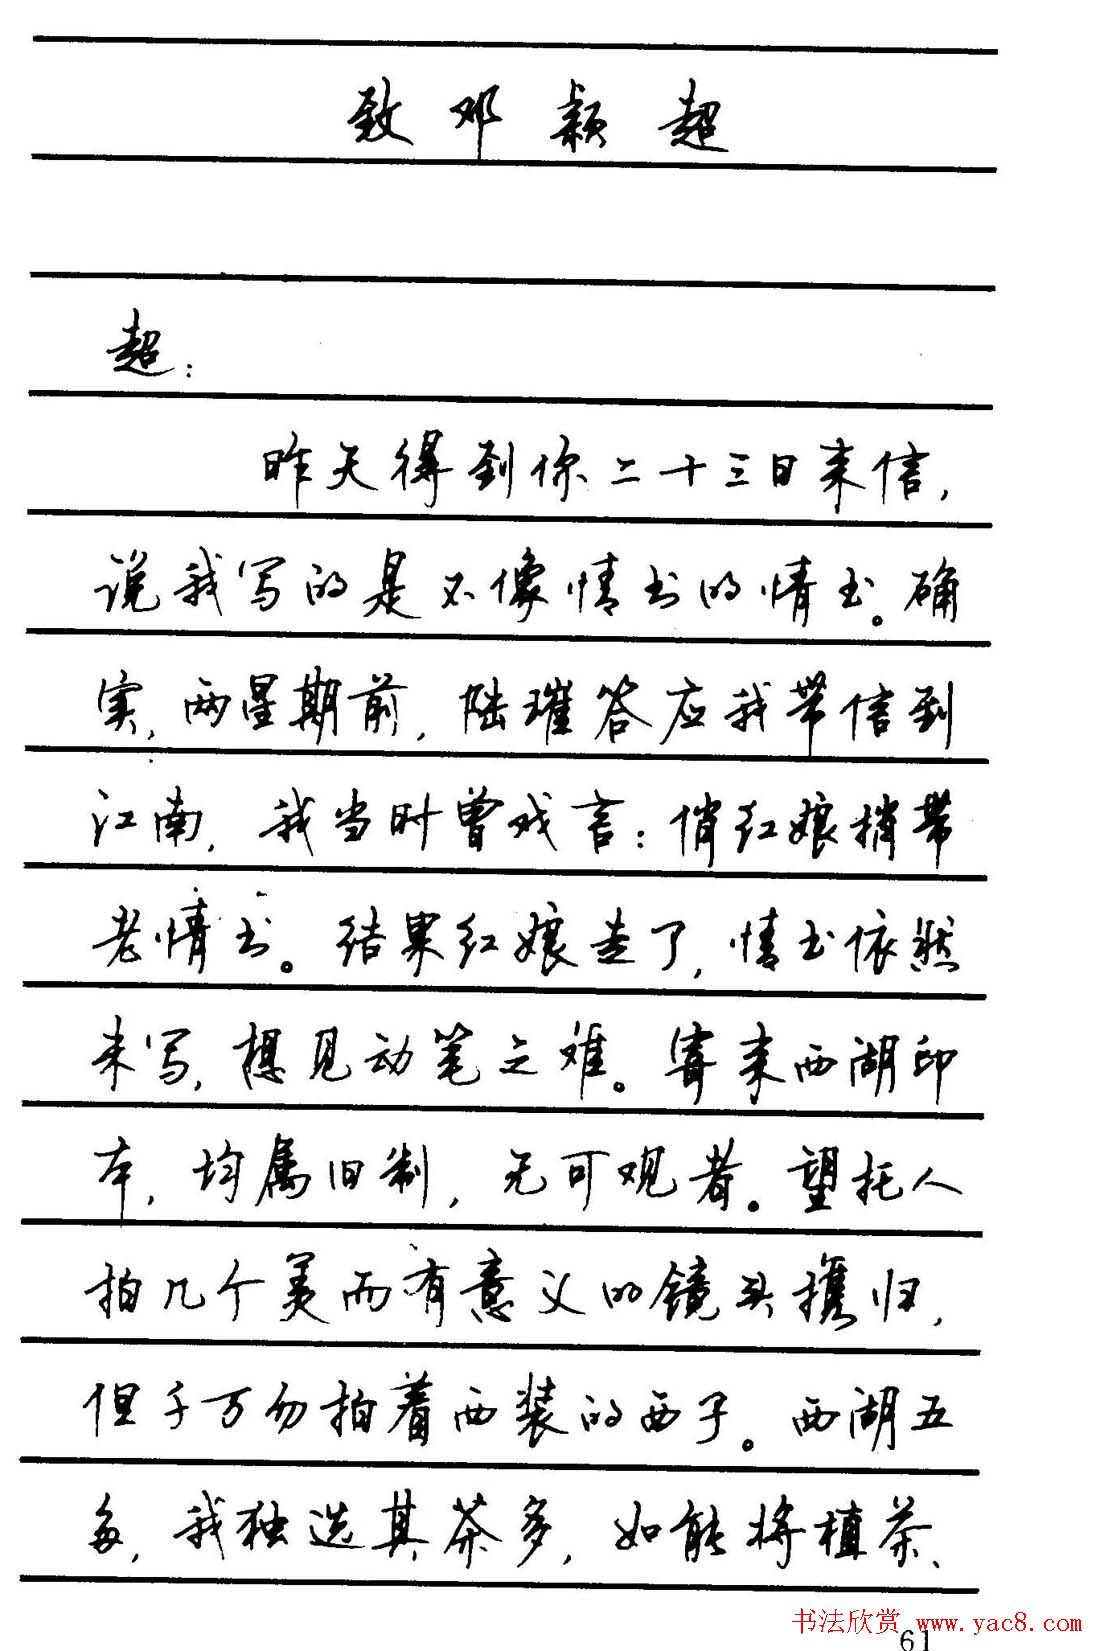 致邓颖超
超：
昨天得到你二十三日来信，
说我写的是不像情书的情书。确
实，两星期前，陆璀答应我带信到
江南，我当时曾戏言：俏红娘捎带
老情书。结果红娘走了，情书依然
未写，想见动笔之难。寄来西湖印
本，均属旧制，无可观者。望托人
拍几个美而有意义的镜头携归，
但千万勿拍着西装的西子。西湖五
多，我独选其茶多，如能将植茶、
书法欣赏 www.yac8.com
61